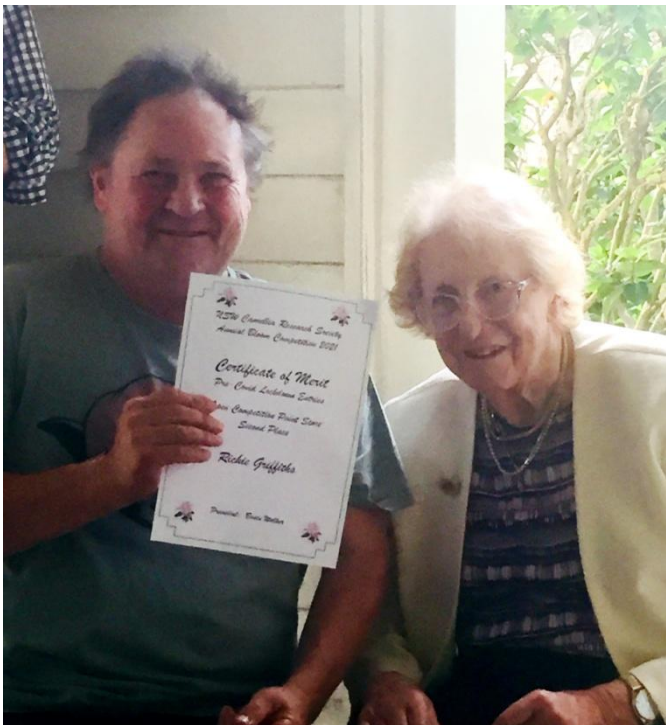 NSW Camellia Research Society
Annual Bloom Competition 2021
Certificate of Merit
Pre-Covid Lockdown Entries
Open Competition Point Score
Second Place
Richie Griffiths
President: